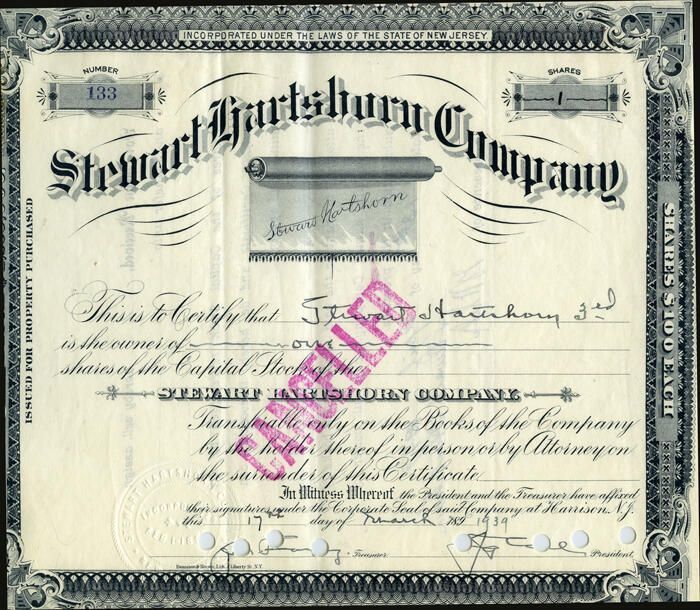 INCORPORATED UNDER THE LAWS OF THE STATE OF NEW JERSEY.
NUMBER
133
SHARES
1
Stewart Hartshorn Company
Stewart Hartshorn
ISSUED FOR PROPERTY PURCHASED
SHARES $100 EACH
This is to Certify that Stewart Hartshorn 3rd
is the owner of one
shares of the Capital Stock of the
STEWART HARTSHORN COMPANY.
Transferable only on the Books of the Company
by the holder thereof in person or by Attorney on
the surrender of this Certificate
CANCELLED
In Witness Whereof the President and the Treasurer have affixed
their signatures under the Corporate Seal of said Company at Harrison, N.J.
this 17th day of March 1939
Treasurer.
President.
STEWART HARTSHORN